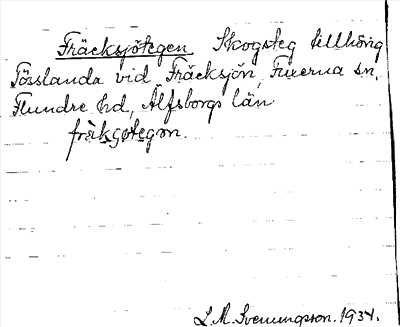 Fräcksjötegen Skogsteg tillhörig
Tösslanda vid Fräcksjön, Fuxerna sn,
Flundre hd, Älfsborgs län
fräkʂøtegən.
L. M. Svenungsson. 1934.